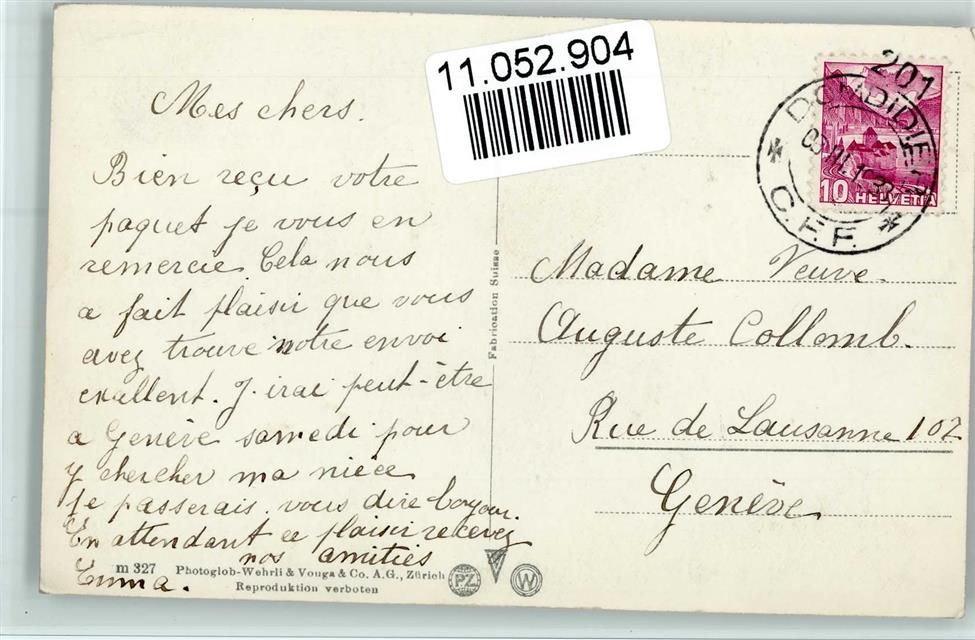 11.052.904
201
DOMDIDIER
C.F.F.
10 HELVETIA
Mes chers.
Bien reçu votre
paquet je vous en
remercie. Cela nous
a fait plaisir que vous
avez trouve notre envoi
exallent. J. irai peut-être
a Genève samedi pour
y chercher ma nièce
je passerais vous dire bonjour.
En attendant ce plaisir recevez
nos amitiés
Emma.
Fabrication Suisse
Madame Veuve.
Auguste Collomb.
Rue de Lausanne 107
Genève
m 327 Photoglob-Wehrli & Vouga & Co. A.G., Zürich
Reproduktion verboten
PZ
V
W